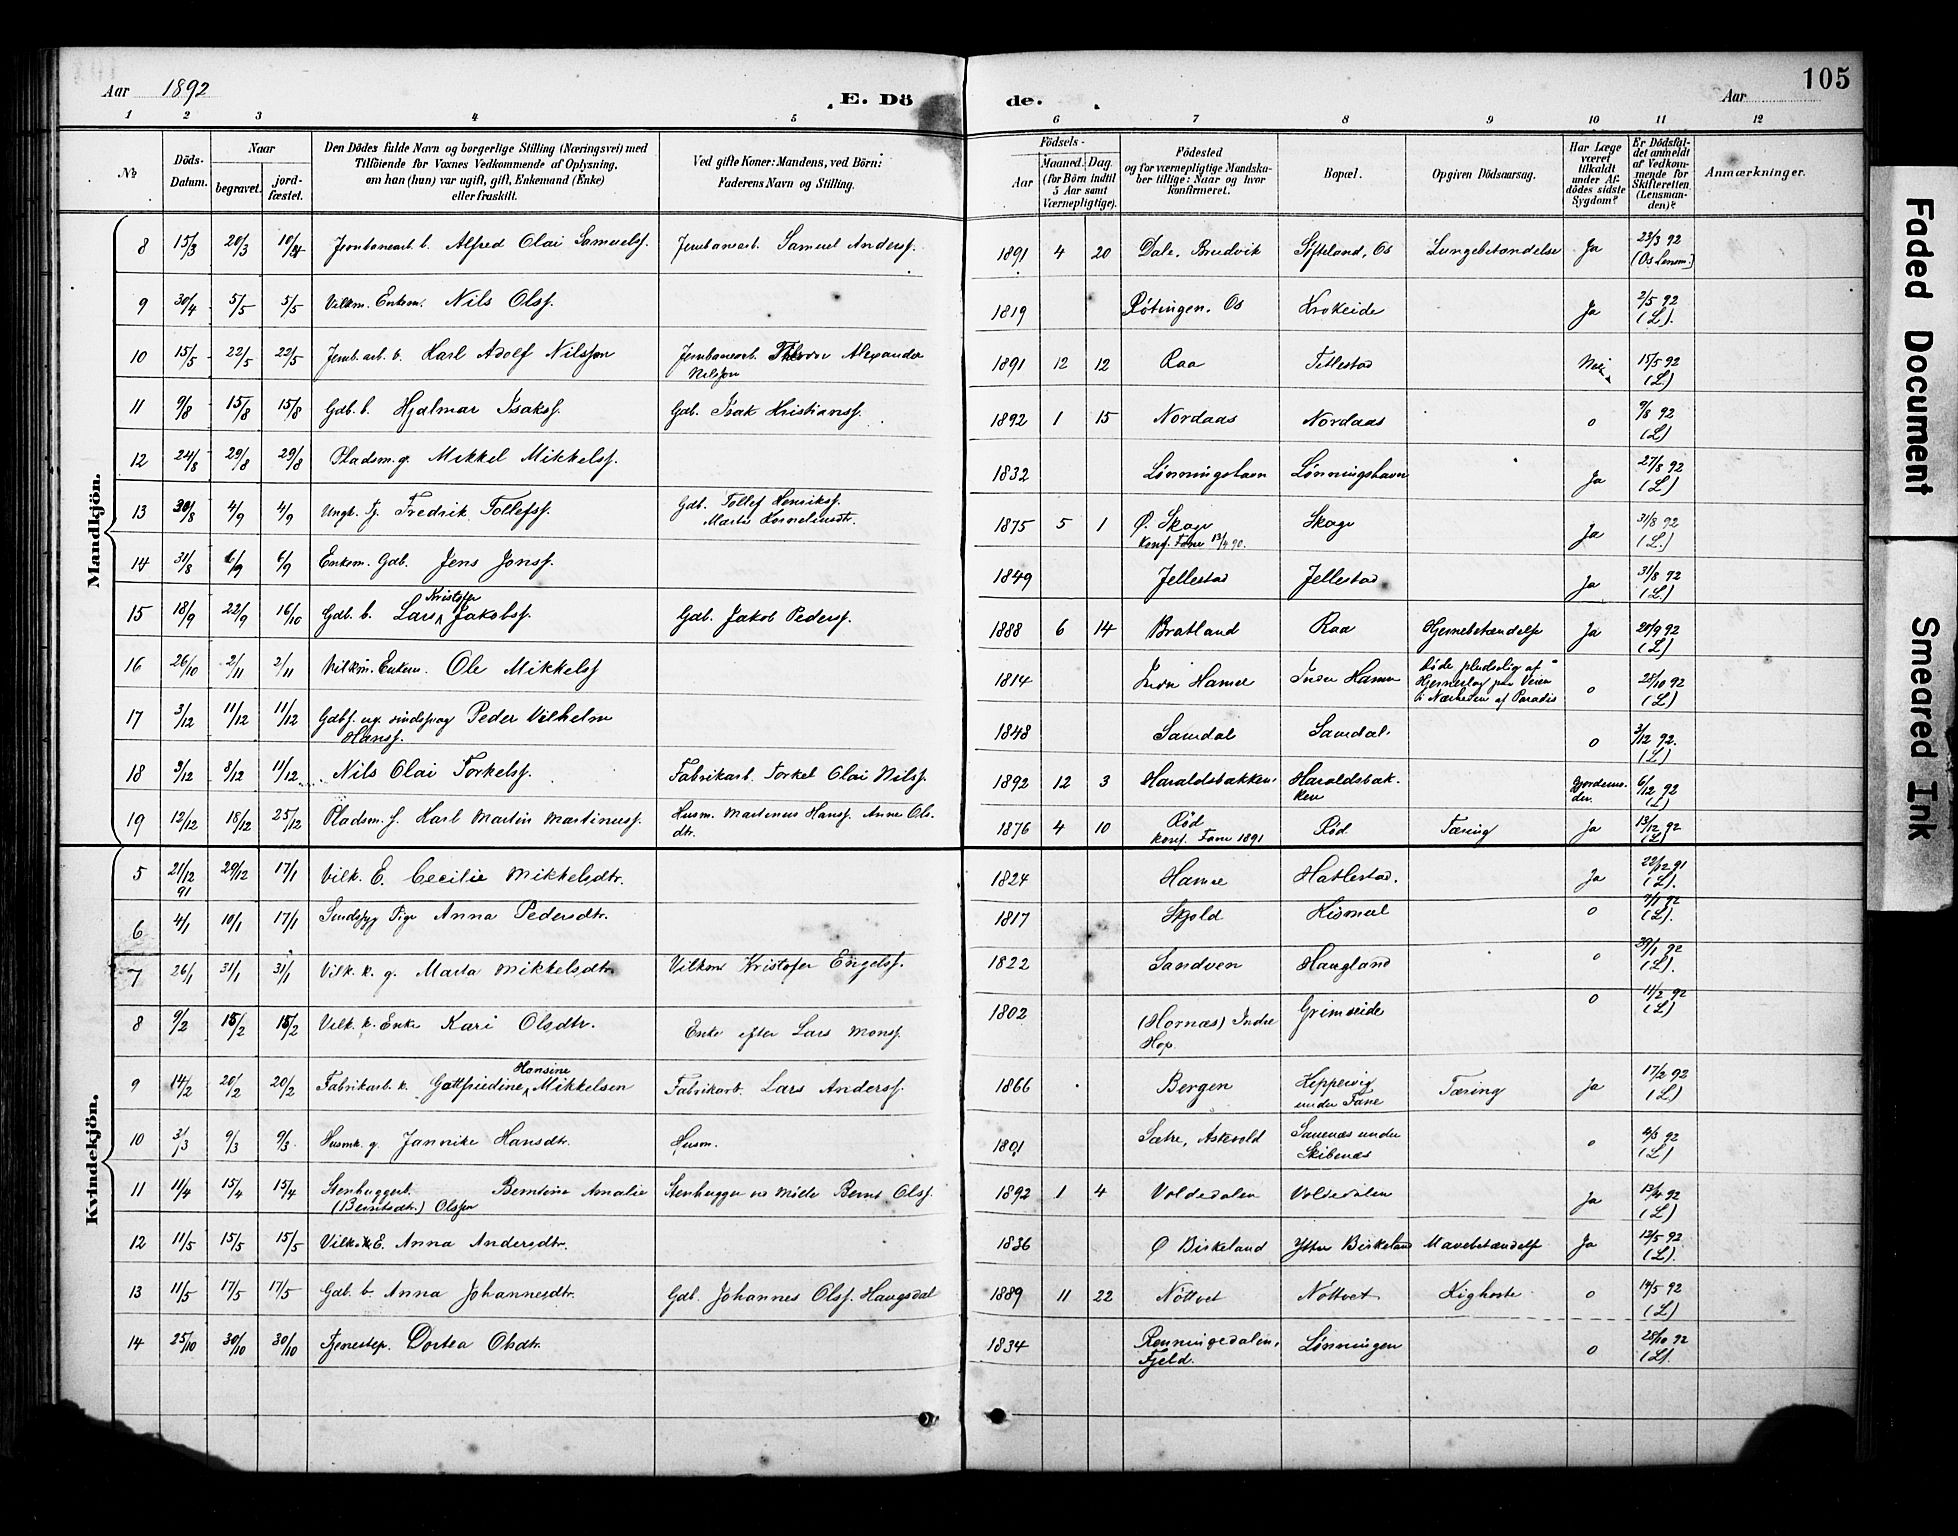 Aar 1892
E. Döde.
Aar
105
1 2 3 4 5 6 7 8 9 10 11 12
№
Döds-Datum.
Naar
begravet.
jordfæstet.
Den Dödes fulde Navn og borgerlige Stilling (Næringsvei) med
Tilföiende for Voxnes Vedkommende af Oplysning,
om han (hun) var ugift, gift, Enkemand (Enke)
eller fraskilt.
Ved gifte Koner: Mandens, ved Börn:
Faderens Navn og Stilling.
Födsels-
Aar
Maaned. Dag.
(for Börn indtil
5 Aar samt
Værnepligtige).
Födested
og for værnepligtige Mandskaber tillige: Naar og hvor
konfirmeret.
Bopæl.
Opgiven Dödsaarsag.
Har Læge
været
tilkaldt
under Afdödes sidste
Sygdom?
Er Dödsfaldet anmeldt
af Vedkommende for
Skifteretten
(Lensmanden)?
Anmærkninger.
Mandkjön.
8 15/3 20/3 Jernbanearb. b. Alfred Olai Samuelsf. Jernbanearb. Samuel Andersf. 1891 4 20 Dale, Brudvik Søfteland, Os Lungebetændelse Ja 23/3 92
(Os Lensm.)
9 30/4 5/5 5/5 Vilkm. Enkem. Nils Olsf. 1819 Røtingen, Os Krokeide Ja 2/5 92
(L).
10 15/5 22/5 22/5 Jernb. arb. b. Karl Adolf Nilsson Jernbanearb. Alexander
Nilsson 1891 12 12 Raa Titlestad Nei 15/5 92
(L)
11 9/8 15/8 15/8 Gdb. b. Hjalmar Isaksf. Gdb. Isak Kristiansf. 1892 1 15 Nordaas Nordaas o 9/8 92
(L)
12 24/8 29/8 29/8 Pladsm. g. Mikkel Mikkelsf. 1832 Lønningshavn Lønningshavn Ja 27/8 92
(L)
13 30/8 4/9 4/9 Ungk. Fredrik Tollefsf. Gdb. Tollef Henriksf.
Marta Korneliusdtr. 1875 5 1 Ø. Skage
Konf. Fane 13/4 90. Skage Ja 31/8 92
(L.)
14 31/8 6/9 6/9 Enkem. Gdb. Jens Jonsf. 1849 Jellestad Jellestad Ja 31/8 92
(L.)
15 18/9 22/9 16/10 Gdb. b. Lars Kristofer Jakobsf. Gdb. Jakob Pedersf. 1888 6 14 Bratland Raa Hjernebetændelse Ja 20/9 92
(L)
16 26/10 2/11 2/11 Vilkm. Enkem. Ole Mikkelsf 1814 Indre Hamre Indre Hamre Døde pludselig af
Hjerneslag paa Veien
i Nærheden af Paradis o 28/10 92
(L)
17 3/12 11/12 11/12 Gdbf. ug. sindssvag Peder Vilhelm
Hansf. 1848 Samdal Samdal. o 3/12 92.
(L)
18 3/12 8/12 11/12 Nils Olai Torkelsf. Fabrikarb. Torkel Olai Nilsf. 1892 12 3 Haraldsbakken. Haraldsbakken Jordemoder. 6/12 92
(L)
19 12/12 18/12 25/12 Pladsm. f. Karl Martin Martinusf. Husm. Martinus Hansf. Anne Olsdtr. 1876 4 10 Rød
Konf. Fane 1891 Rød Tæring Ja 13/12 92
(L)
Kvindekjön.
5 21/12 91 29/12 17/1 Vilk. E. Cecilie Mikkelsdtr. 1824 Hamre Hatlestad. Ja 22/12 91
(L).
6 4/1 10/1 17/1 Sindssyg Pige Anna Pedersdtr. 1817 Skjold o 7/1 92
(L).
7 26/1 31/1 31/1 Vilk. k. g. Marta Mikkelsdtr. Vilkm Kristofer Engelsf. 1822 Sandven Haugland o 30/1 92
(L).
8 9/2 15/2 15/2 Vilk. k. Enke Kari Olsdtr. Enke efter Lars Monsf. 1802 (Hornæs) Indre
Hop. Grimseide o 11/2 92
(L)
9 14/2 20/2 20/2 Fabrikarb. k. Gottfriedine Hansine Mikkelsen Fabrikarb. Lars Andersf. 1866 Bergen Keppevig
under Fane Tæring Ja 17/2 92
(L)
10 3/3 9/3 9/3 Husmk. g. Jannike Hansdtr. Husm. 1801 Sætre, Astevold Sauenæs under
Skibenæs o 4/3 92
(L)
11 11/4 15/4 15/4 Stenhuggerb. Berntine Amalie
(Berntsdtr.) Olssen Stenhugger Bernt Olsf. 1892 1 4 Voldedalen Voldedalen Ja 13/4 92
(L)
12 11/5 15/5 15/5 Vilk. k. E. Anna Andersdtr. 1836 Ø Birkeland Ytre Birkeland Mavebetændelse Ja 12/5 92
(L).
13 11/5 17/5 17/5 Gdb. b. Anna Johannesdtr. Gdb. Johannes Olsf. Haugsdal 1889 11 22 Nøttvet Nøttvet Kighoste o 14/5 92
(L)
14 25/10 30/10 30/10 Tjenestep. Dortea Olsdtr. 1834 Renningedalen,
Fjeld. Lønningen o 28/10 92
(L).
Faded Document
Smeared Ink